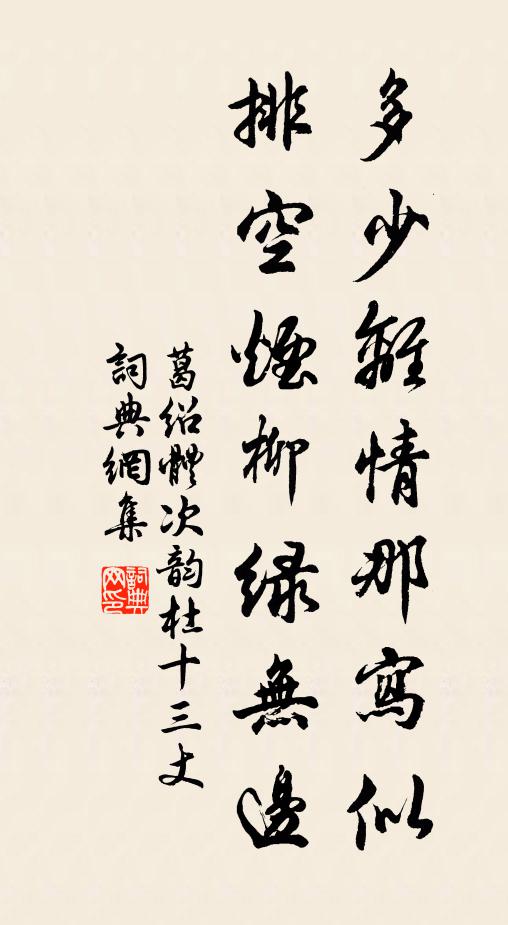 多少離情那寫似
排空煙柳緑無邊
葛紹體次韵杜十三丈
詞典網集
詞典網印